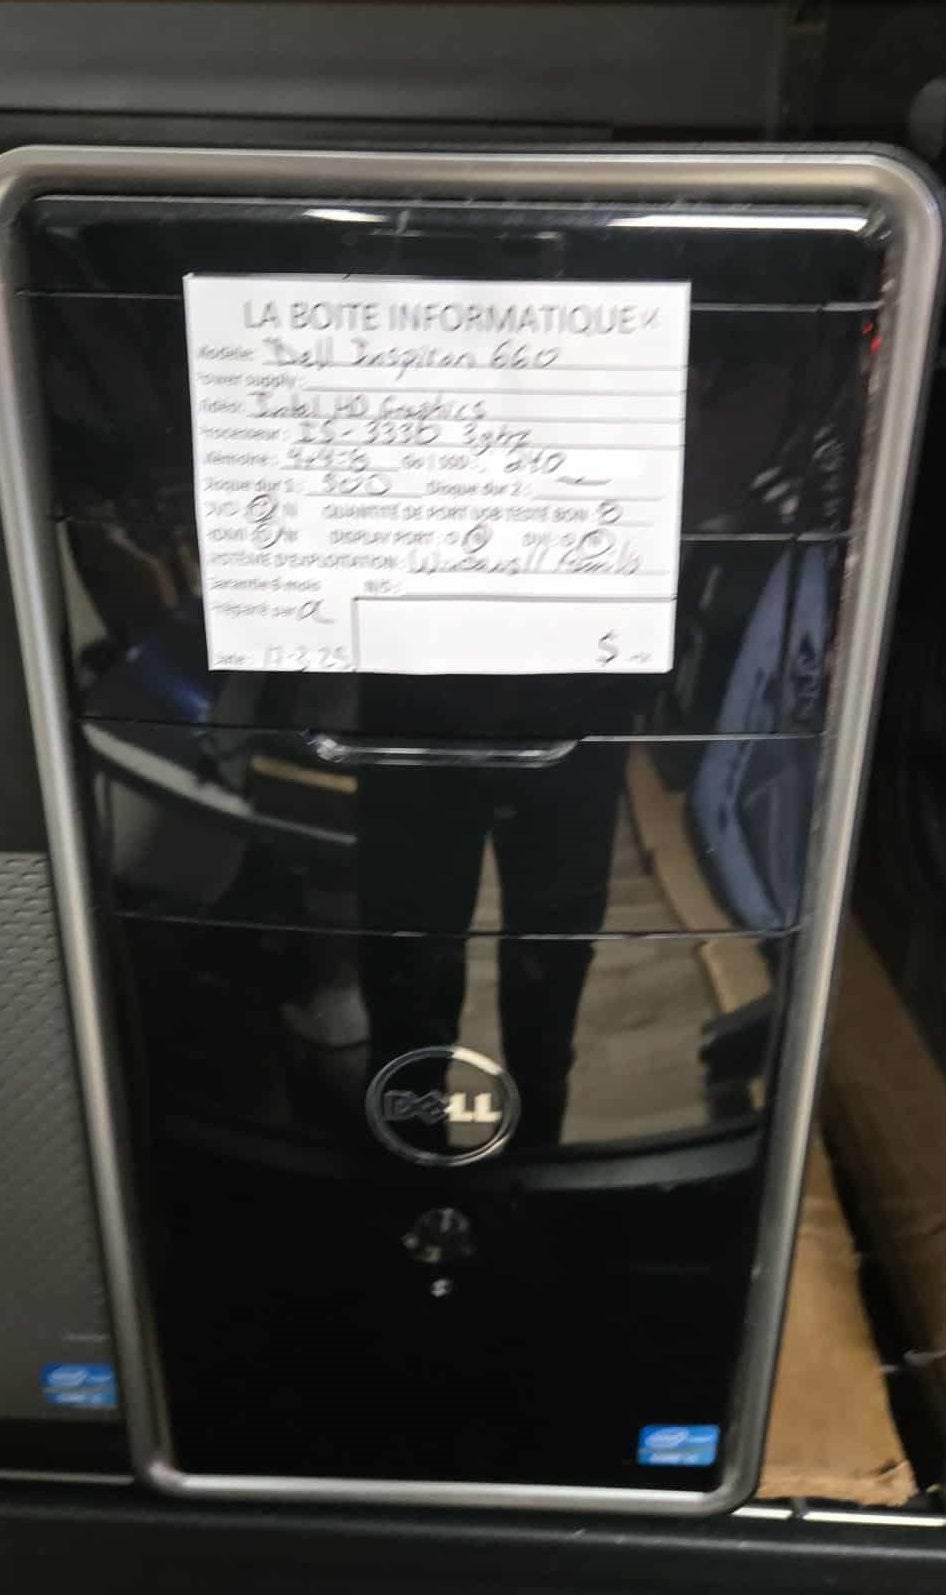 LA BOITE INFORMATIQUE
Modèle: Dell Inspiron 660
Power supply:
Vidéo: Intel HD Graphics
Processeur: I5-3330 3ghz
Mémoire: 4+4=8 Go SSD: 240
Disque dur 1: 500 Disque dur 2:
O N QUANTITÉ DE PORT USB TESTÉ BON 8
HDMI O N DISPLAY PORT O N DVI O N
SYSTÈME D'EXPLOITATION: Windows 11 Famille
Garantie 6 mois
Préparé par
$
Date: 17-2-25
DELL
intel
intel